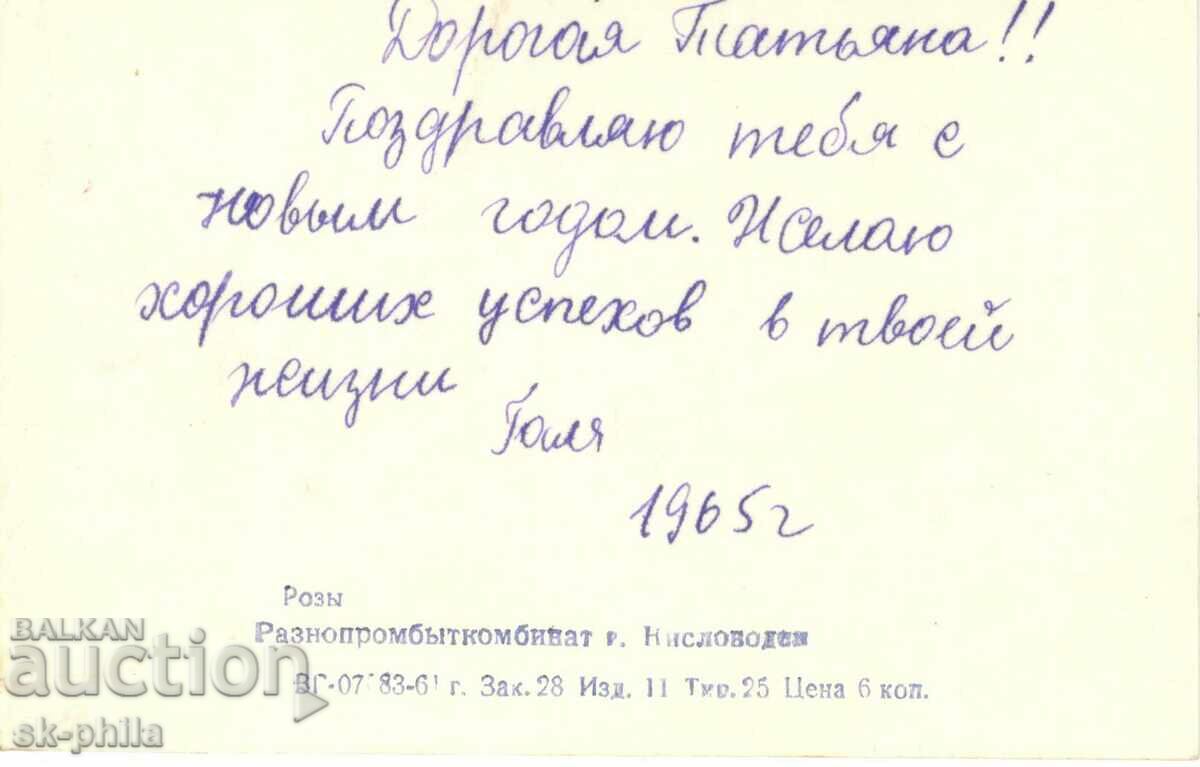 Дорогая Татьяна!!
Поздравляю тебя с
новым годом. Желаю
хороших успехов в твоей
жизни
Галя
1965г
Розы
Разнопромбыткомбинат г. Кисловодск
Зак. 28 Изд. 11 Тир. 25 Цена 6 коп.
BALKAN
auction
sk-phila